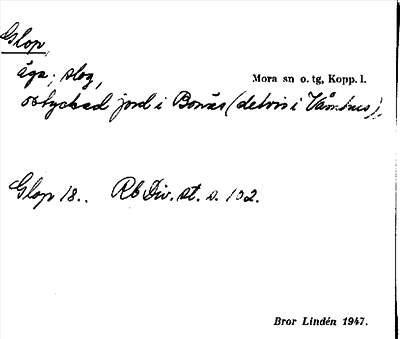 Glop,
äga; slog,
Mora sn o. tg, Kopp. l.
ostyckad jord i Bonäs (delvis i Våmhus),
Glop 18.. Rb Div. st. s. 102.
Bror Lindén 1947.